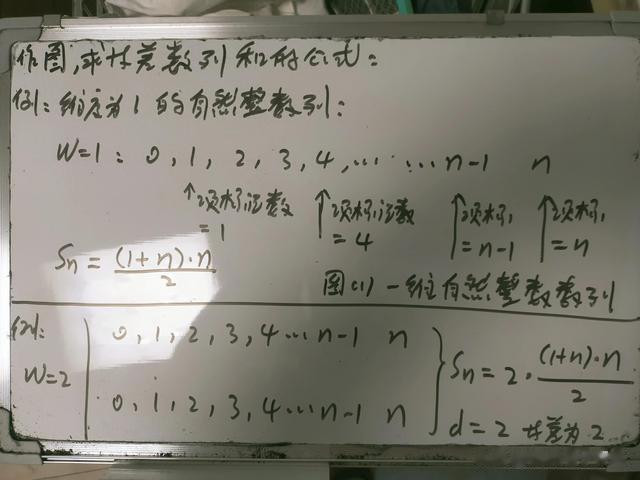 作图,求等差数列和的公式:
例:维度为1的自然整数列:
W=1: 0, 1, 2, 3, 4, …… …n-1 n
↑项标注数=1 ↑项标注数=4 ↑项标=n-1 ↑项标=n
Sn = (1+n)·n / 2
图(1) 一维自然整数数列
例: 0, 1, 2, 3, 4…n-1 n
W=2 Sn = 2·(1+n)·n / 2
0, 1, 2, 3, 4…n-1 n
d=2 等差为2